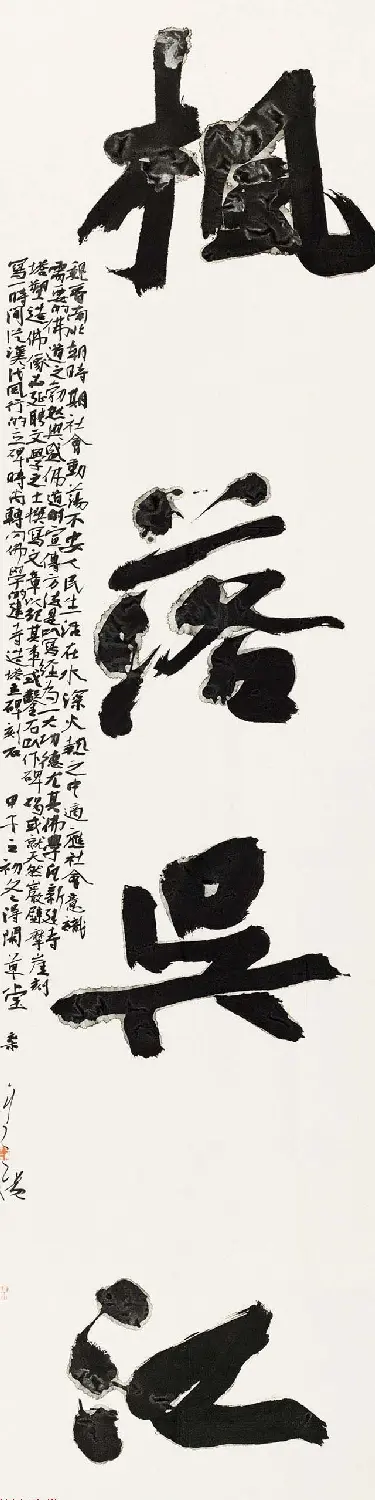 楓落吳江
觀晉南北朝時期社會動蕩不安人民生活在水深火熱之中適應社會意識
需要的佛道之勃起與盛佛道的宣傳方法是以寫經為一大功德尤其佛學民新建寺
塔塑造佛像必延聘文學之士撰寫文章以記其事或鑿石以作碑碣或就天然巖壁摩崖刻
寫一時間從漢代風行的立碑時尚轉向佛學的建寺造塔立碑刻石 甲午之初冬 得閑草堂